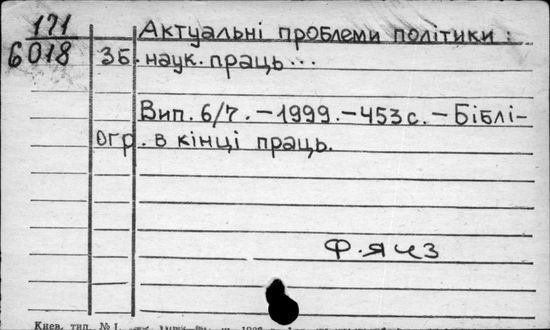 171
Актуальні проблеми політики :
6018
Зб. наук. праць...
Вип. 6/7. – 1999. – 453 с. – Біблі-
огр. в кінці праць.
Ф. я чз
Киев. тип. № 1.